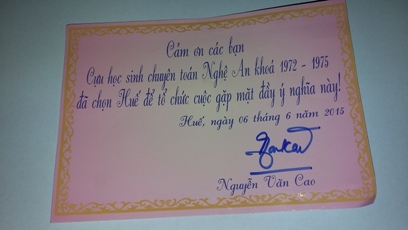 Cám ơn các bạn
Cựu học sinh chuyên toán Nghệ An khoá 1972 - 1975
đã chọn Huế để tổ chức cuộc gặp mặt đầy ý nghĩa này!
Huế, ngày 06 tháng 6 năm 2015
Nguyễn Văn Cao